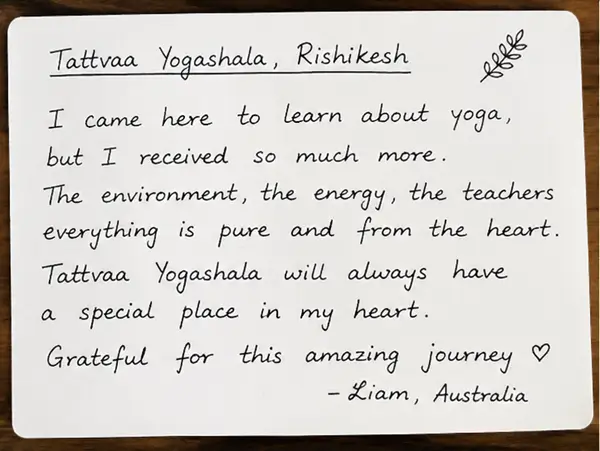 Tattvaa Yogashala, Rishikesh
I came here to learn about yoga,
but I received so much more.
The environment, the energy, the teachers
everything is pure and from the heart.
Tattvaa Yogashala will always have
a special place in my heart.
Grateful for this amazing journey ♡
– Liam, Australia